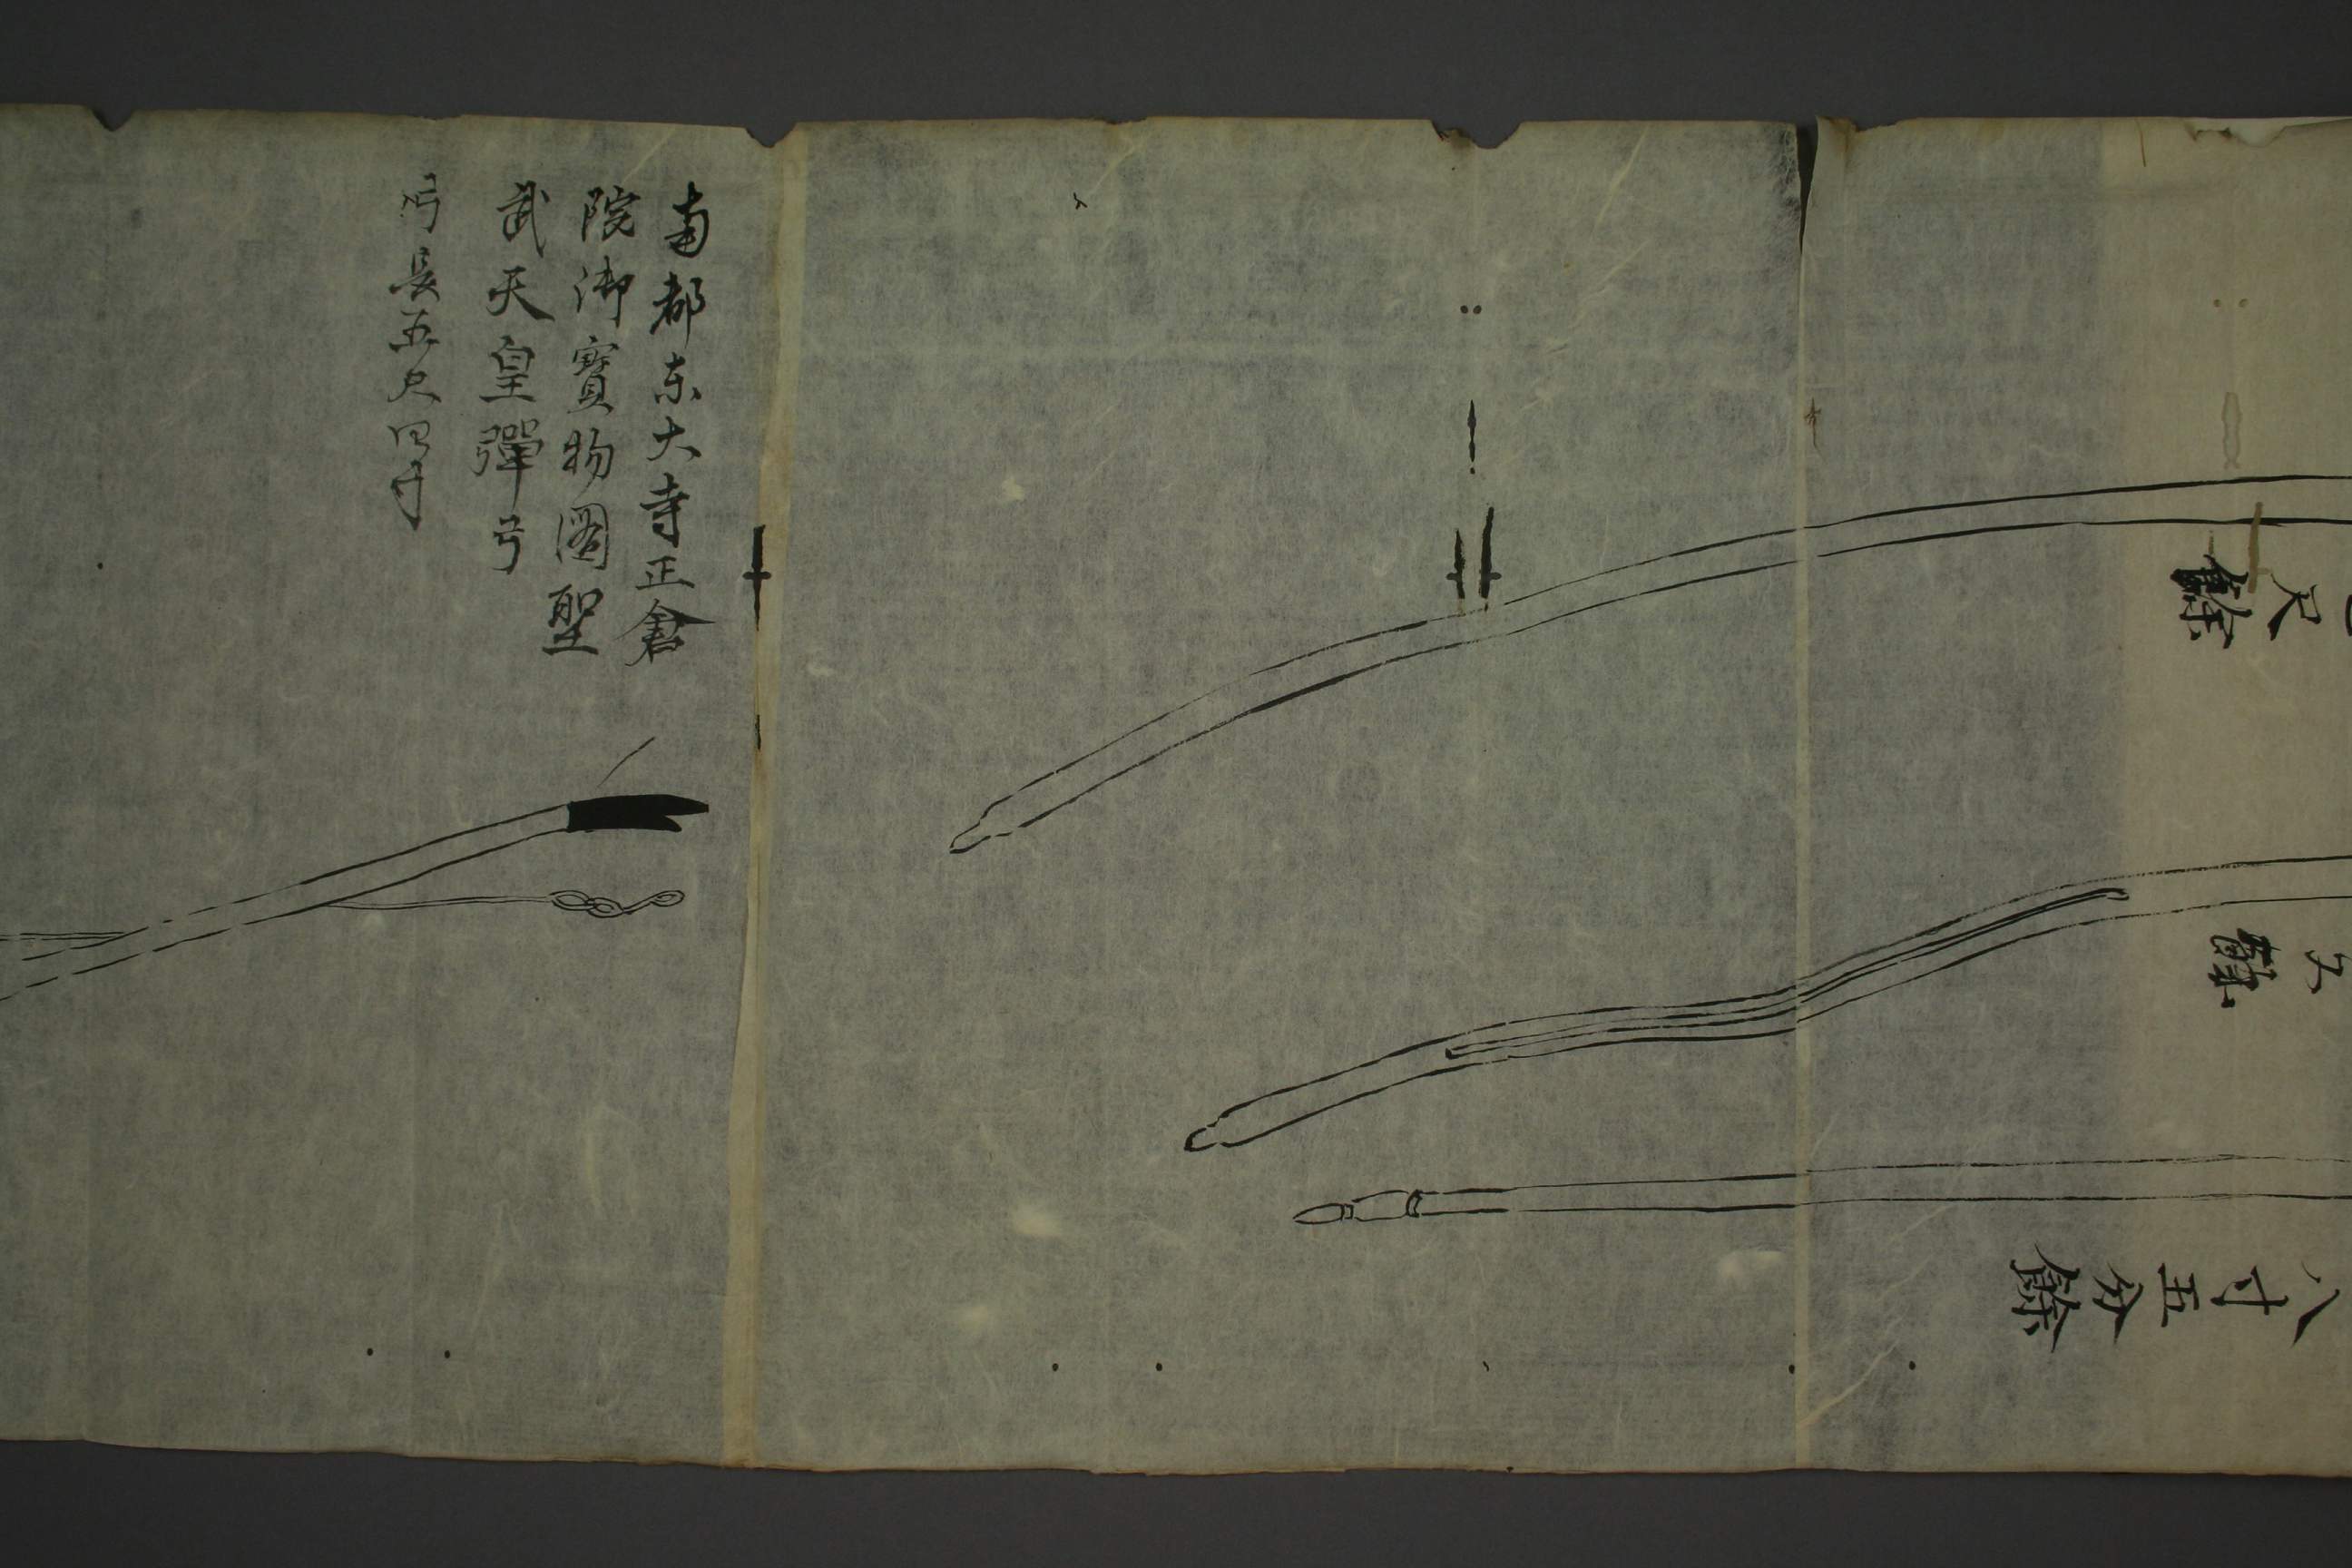 尺餘
餘
八寸五分餘
南都东大寺正倉
院御寳物圖聖
武天皇彈弓
弓長五尺四寸